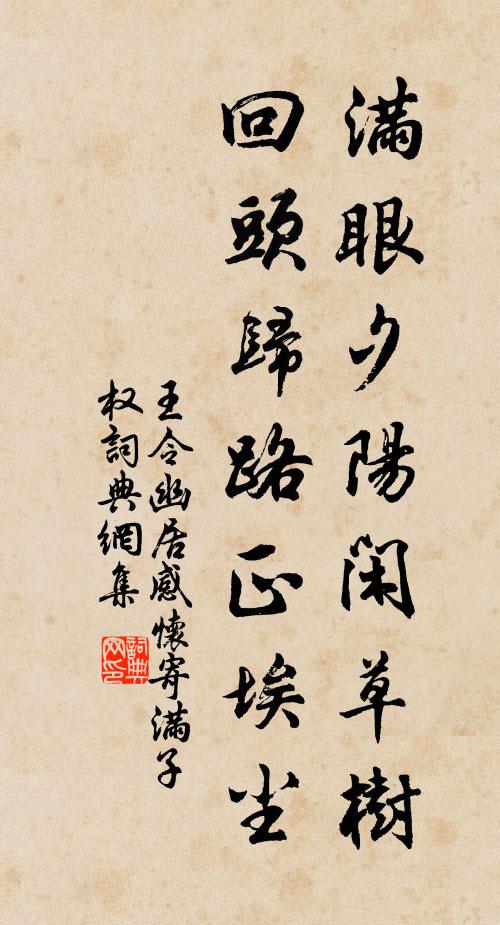 滿眼夕陽閑草樹
回頭歸路正埃尘
王令幽居感懷寄滿子
权詞典網集
詞典
网印